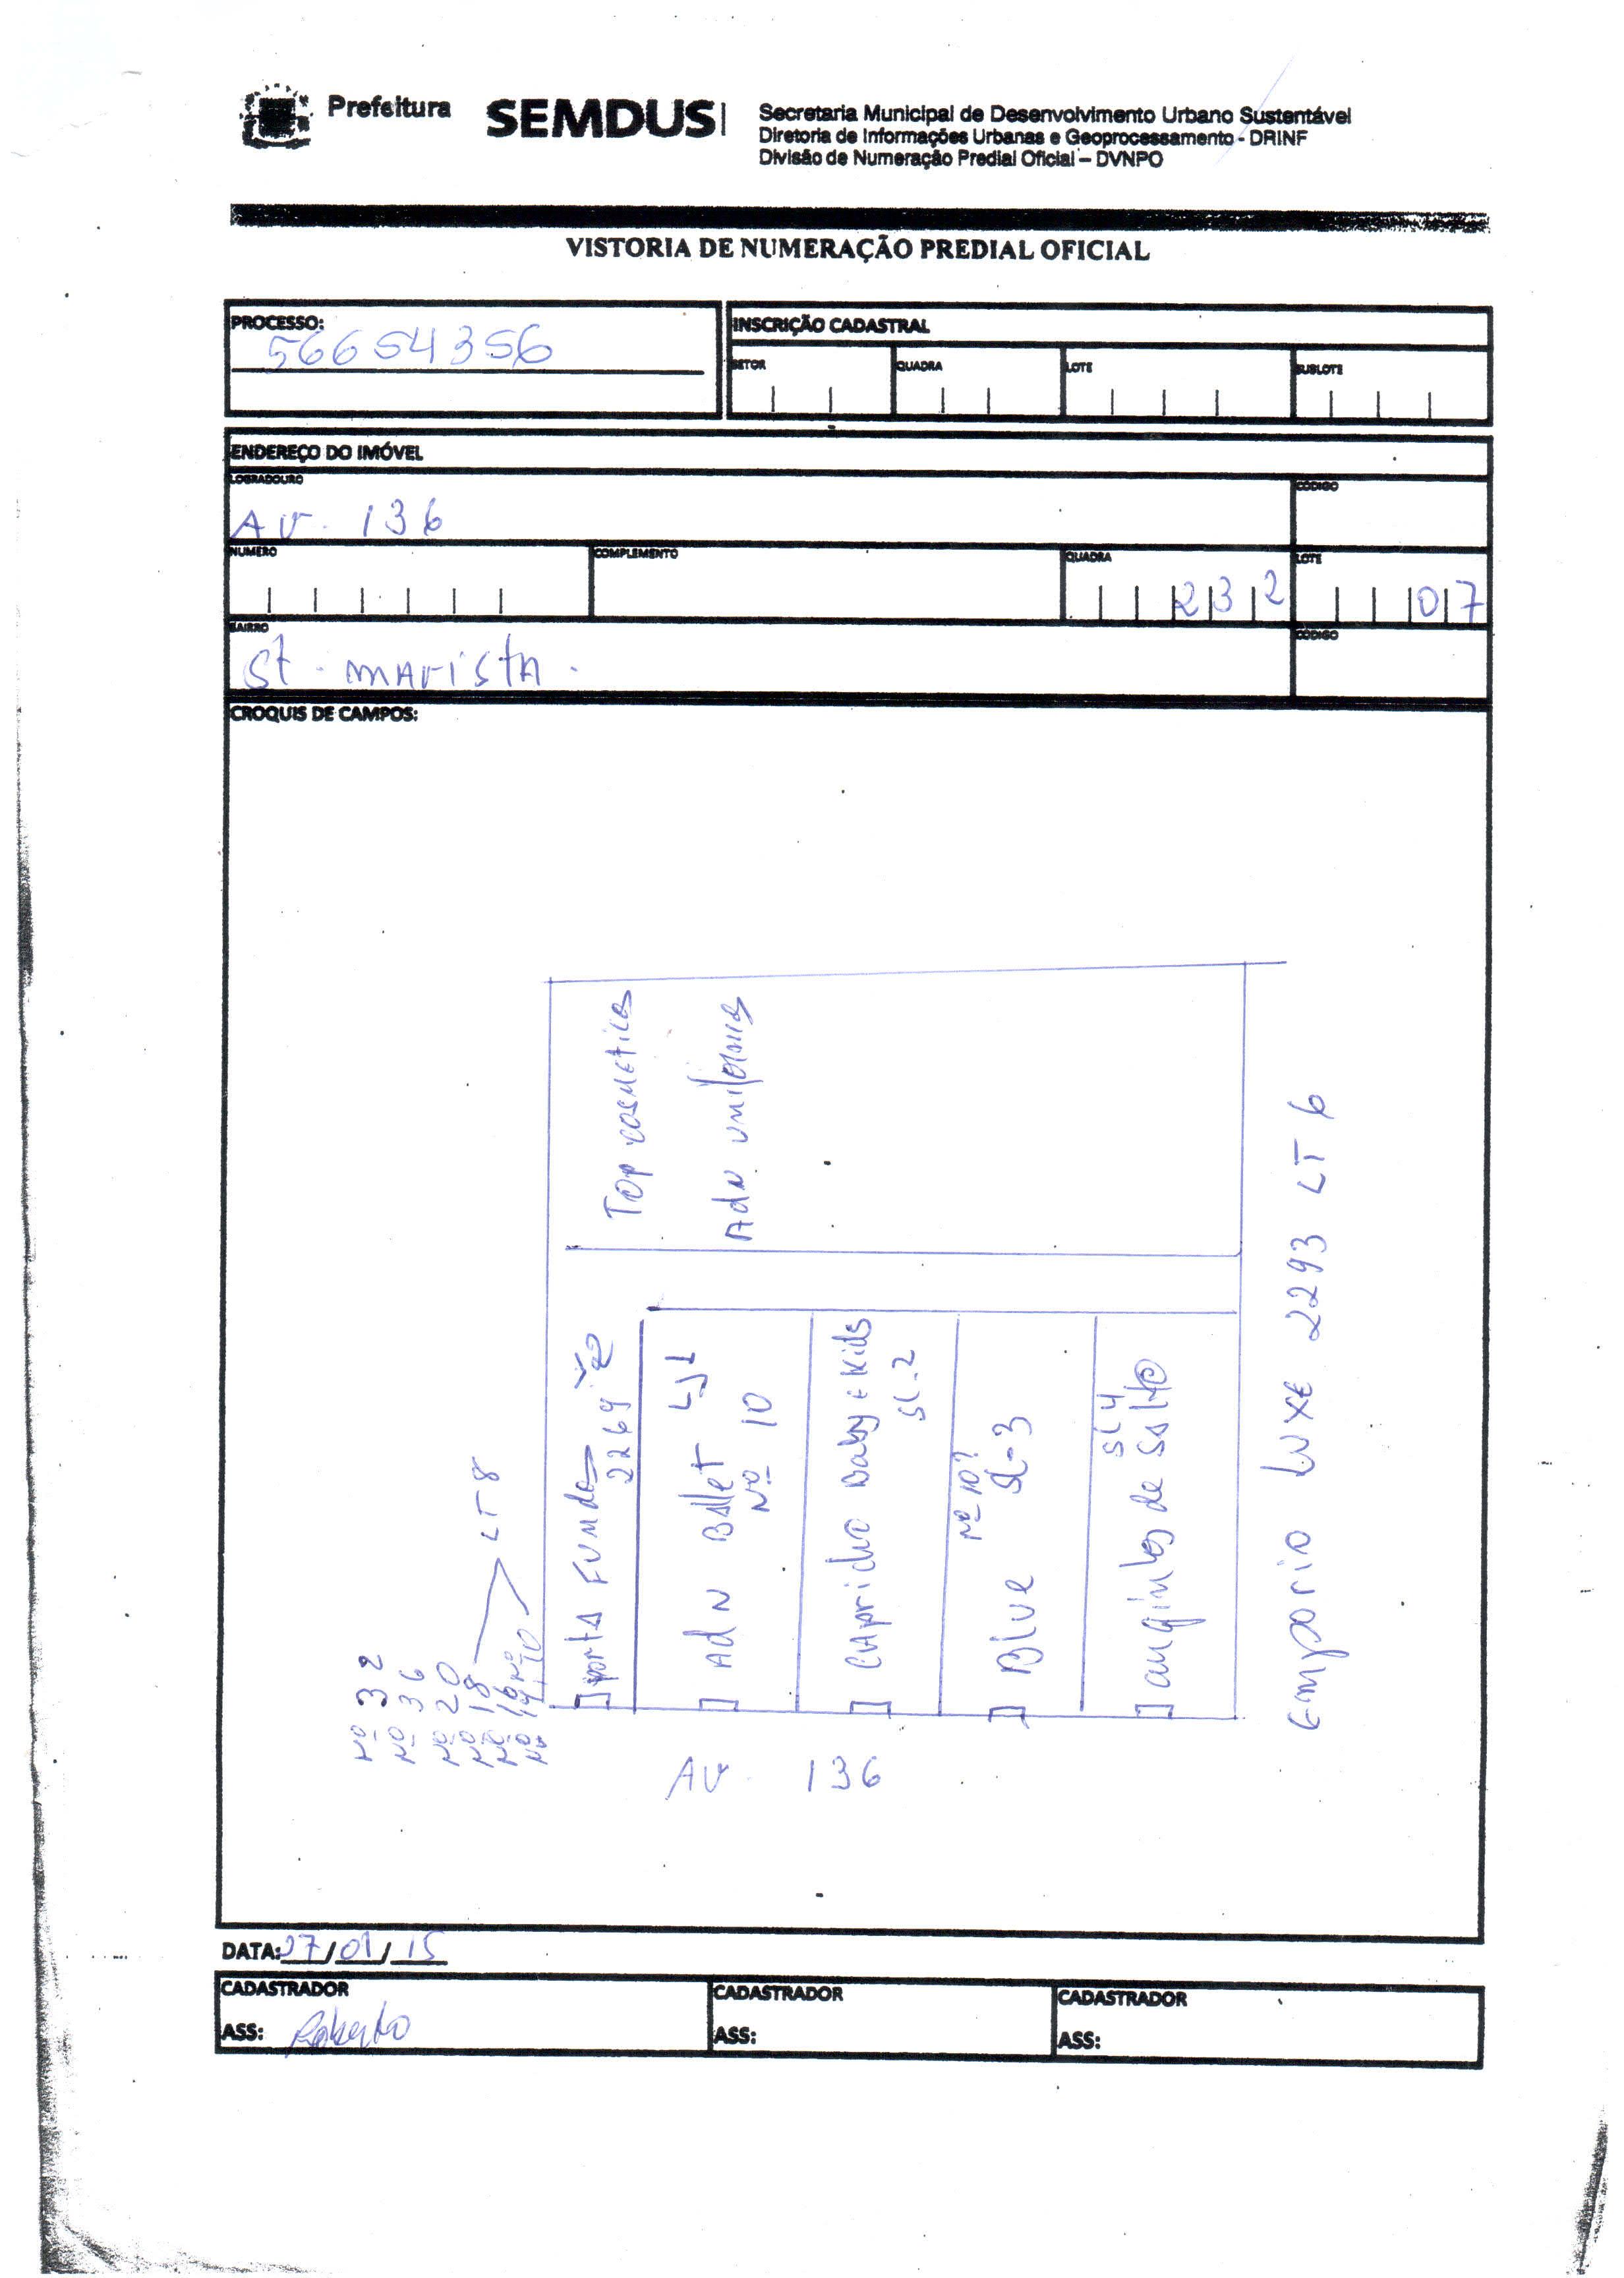 Prefeitura
SEMDUS
Secretaria Municipal de Desenvolvimento Urbano Sustentável
Diretoria de Informações Urbanas e Geoprocessamento - DRINF
Divisão de Numeração Predial Oficial – DVNPO
VISTORIA DE NUMERAÇÃO PREDIAL OFICIAL
PROCESSO:
56654356
INSCRIÇÃO CADASTRAL
SETOR QUADRA LOTE SUBLOTE
ENDEREÇO DO IMÓVEL
LOGRADOURO CÓDIGO
AV. 136
NUMERO COMPLEMENTO QUADRA LOTE
232 07
BAIRRO CÓDIGO
St. Marista.
CROQUIS DE CAMPOS:
Nº 32
Nº 36
Nº 20
Nº 18
Nº 16
LT 8
porta Fundos
2269
Top cosmeticos
Adn uniforms
Adn Ballet LJ 1
Nº 10
Capricho Baby e Kids
SL. 2
Nº 10?
Blue SL-3
SL 4
anginhos de salto
Emporio Luxe 2293 LT 6
AV. 136
DATA: 27/01/15
CADASTRADOR CADASTRADOR CADASTRADOR
ASS: Roberto ASS: ASS: